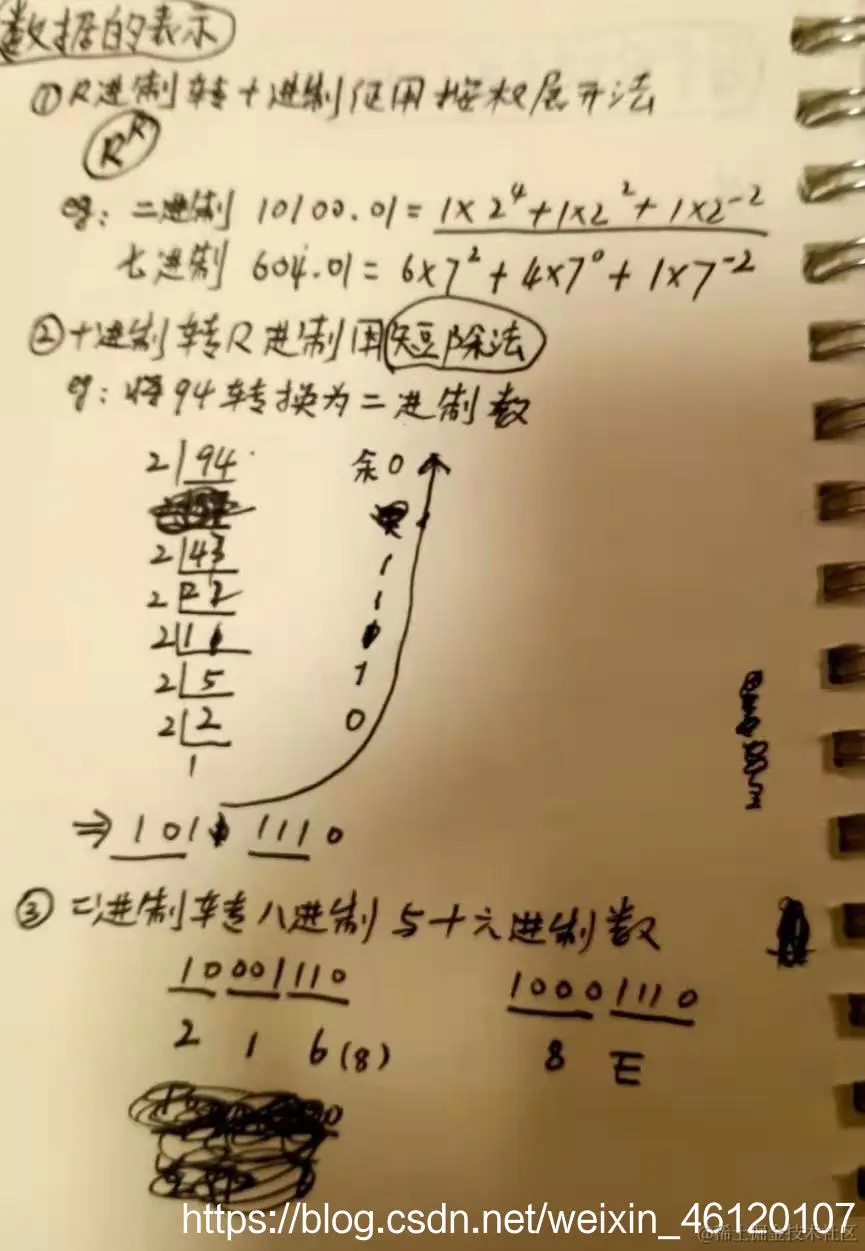 数据的表示
①R进制转十进制使用按权展开法
R^k
eg: 二进制 10100.01 = 1×2^4+1×2^2+1×2^-2
七进制 604.01 = 6×7^2+4×7^0+1×7^-2
②十进制转R进制用短除法
eg: 将94转换为二进制数
2|94 余0
2|43 1
2 1
2|11
2|5 1
2|2 0
1
⇒ 101 1110
③二进制转八进制与十六进制数
10001110 10001110
2 1 6(8) 8 E
https://blog.csdn.net/weixin_46120107
@稀土掘金技术社区